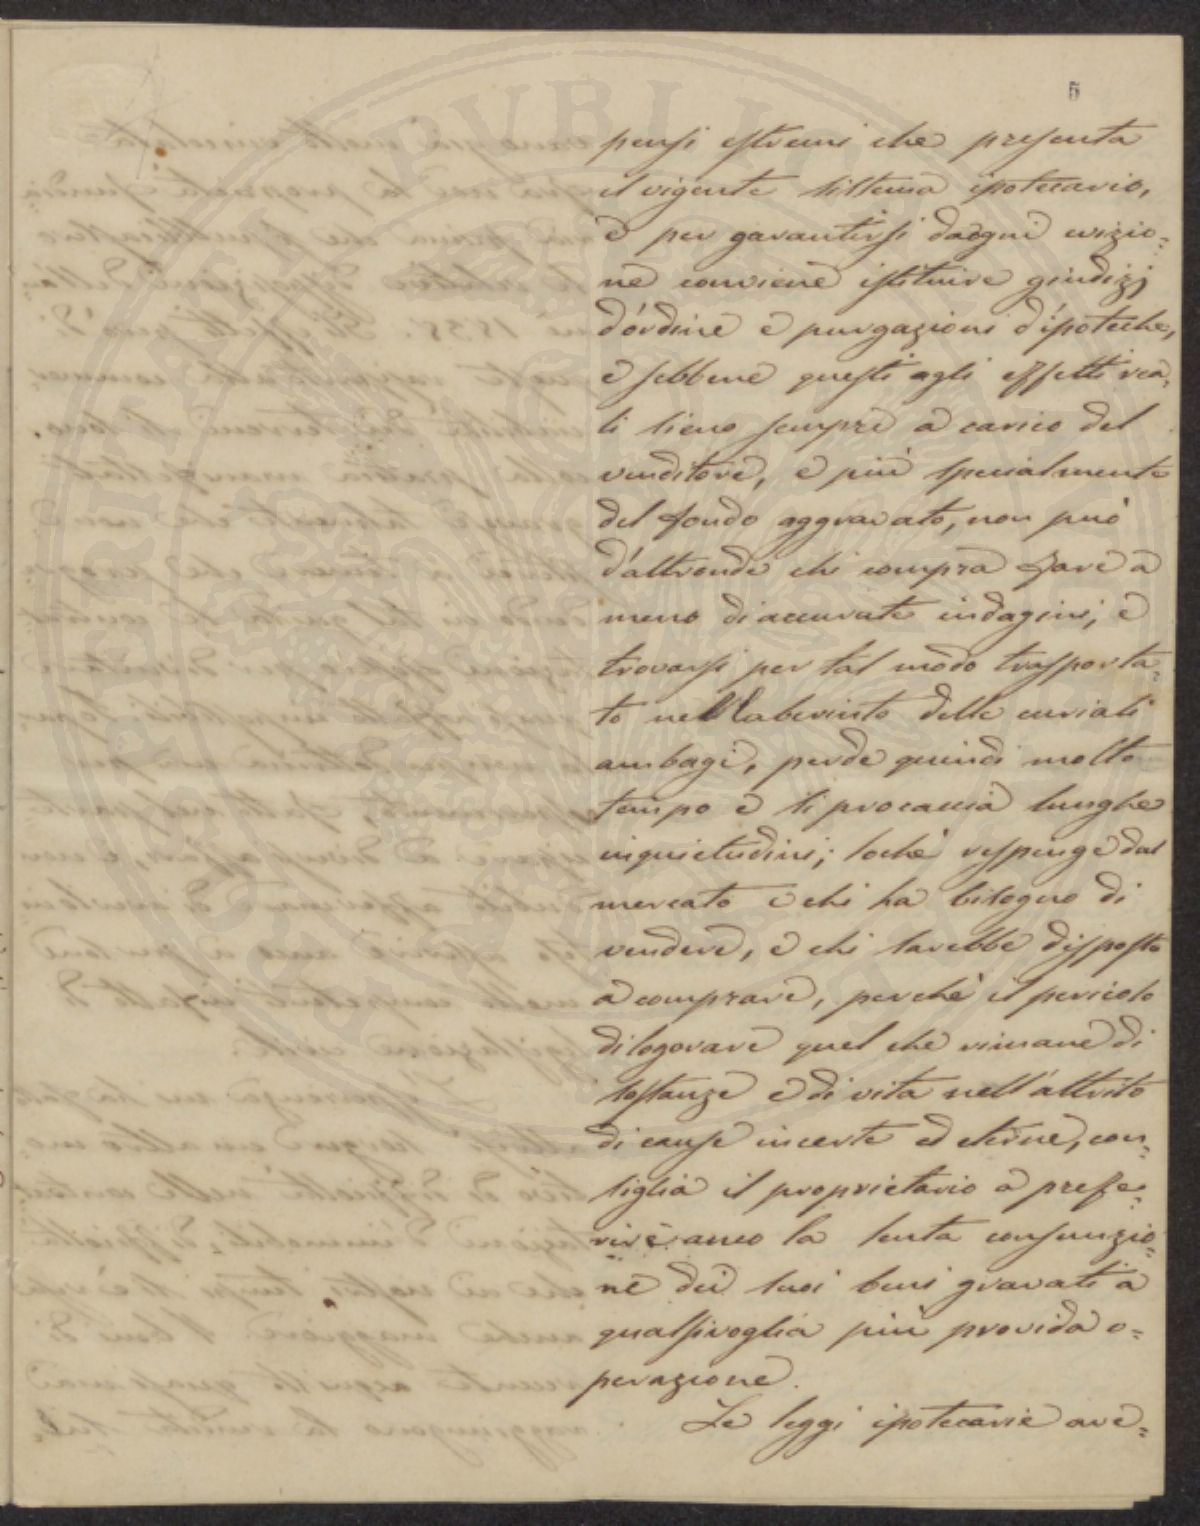 5
pensi estremi che presenta
il vigente sistema ipotecario,
e per garantirsi da ogni evizio=
ne conviene istituire giudizj
d'ordine e purgazioni d'ipoteche,
e sebbene questi agli effetti rea=
li sieno sempre a carico del
venditore, e più specialmente
del fondo aggravato, non può
d'altronde chi compra fare a
meno di accurate indagini, e
trovarsi per tal modo trasporta=
to nel laberinto delle curiali
ambagi, perde quindi molto
tempo e si procaccia lunghe
inquietudini; lochè respinge dal
mercato e chi ha bisogno di
vendere, e chi sarebbe disposto
a comprare, perchè il pericolo
di logorare quel che rimane di
sostanze e di vita nell'attrito
di cause incerte ed eterne, con=
siglia il proprietario a prefe=
rire anco la lenta consunzio=
ne dei suoi beni gravati a
qualsivoglia più provida o=
perazione.
Le leggi ipotecarie ave=